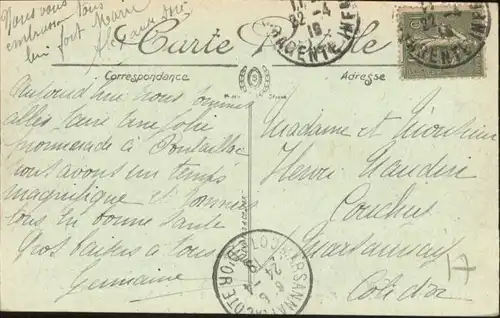 Nous vous
embrassons tous
bien fort Marie
Carte Postale
Correspondance
Adresse
Aujourd'hui nous sommes
allés faire une jolie
promenade à Pontaillac
nous avons un temps
magnifique et sommes
tous en bonne santé
Gros baisers à tous
Germaine
Madame et Monsieur
Henri Naudin
Couchey
Marsannay
Côte d'or
22 -4
19
CHARENTE INF
MARSANNAY-LA-COTE
COTE D'OR